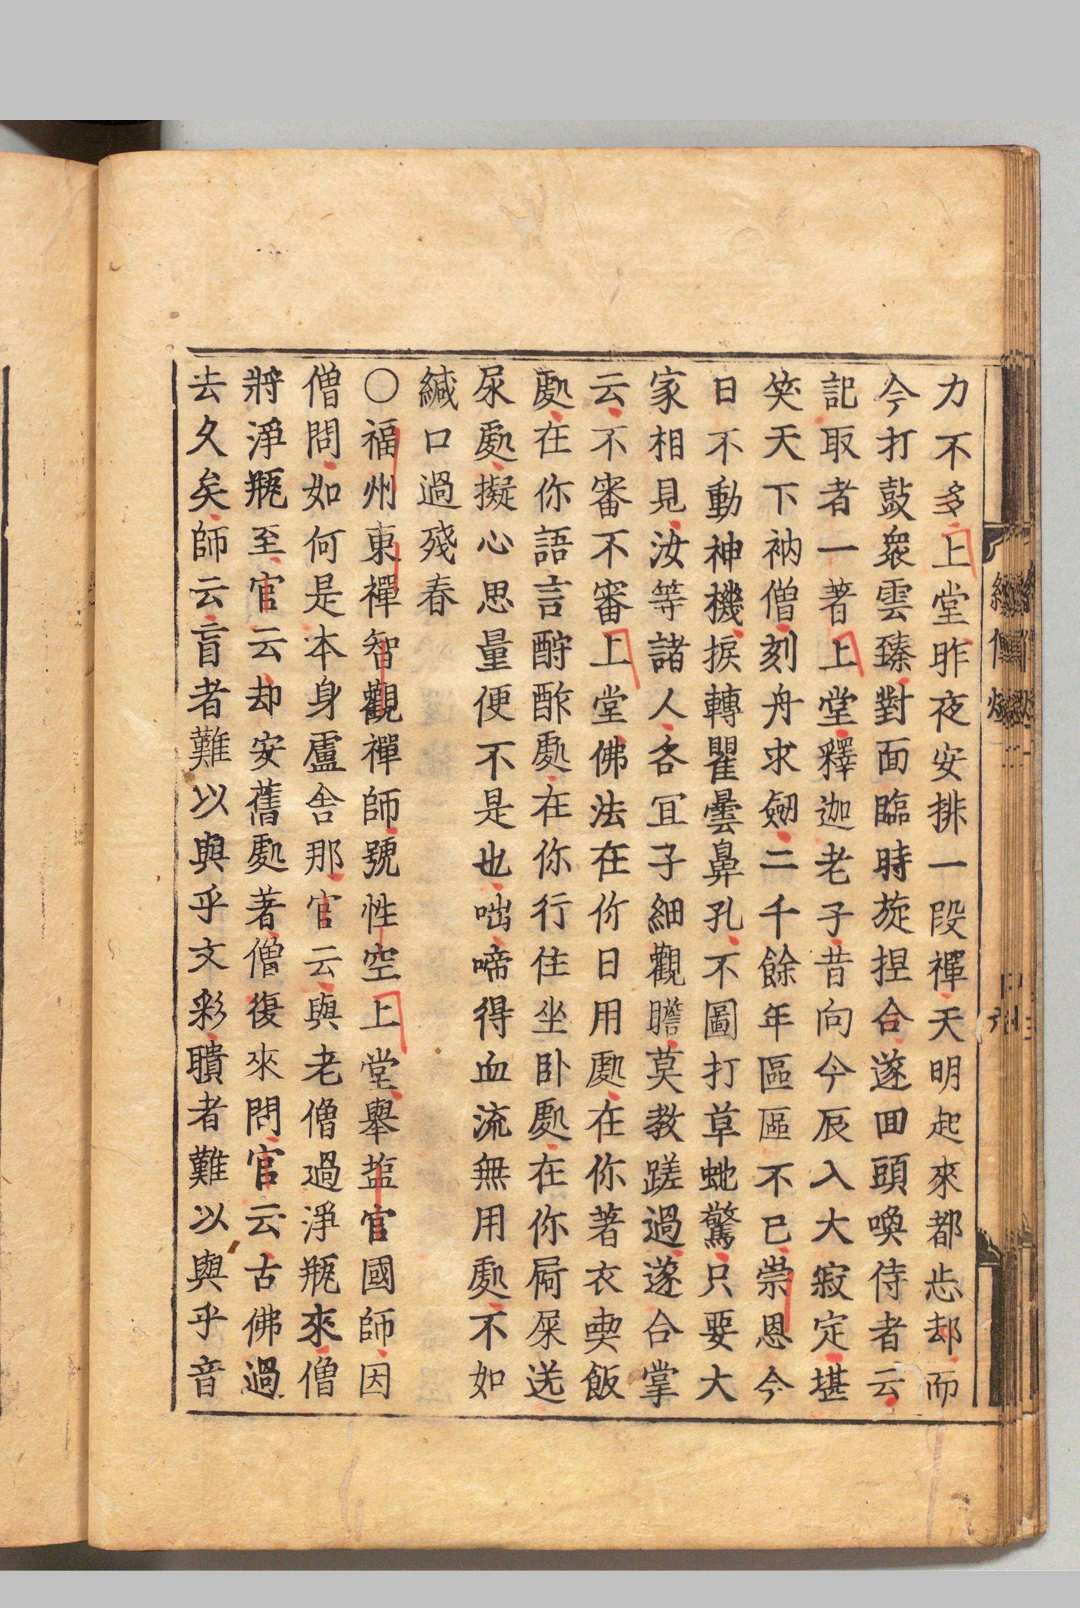 力不多上堂昨夜安排一段禪天明起來都忘却而
今打鼓衆雲臻對面臨時旋捏合遂回頭喚侍者云
記取者一著上堂釋迦老子昔向今辰入大寂定堪
笑天下衲僧刻舟求劒二千餘年區區不已崇恩今
日不動神機捩轉瞿曇鼻孔不圖打草虵驚只要大
家相見汝等諸人各冝子細觀瞻莫教蹉過遂合掌
云不審不審上堂佛法在你日用處在你著衣喫飯
處在你語言酧酢處在你行住坐卧處在你屙屎送
尿處擬心思量便不是也咄啼得血流無用處不如
緘口過殘春
〇福州東禪智觀禪師號性空上堂舉塩官國師因
僧問如何是本身盧舍那官云與老僧過淨瓶來僧
將淨瓶至官云却安舊處著僧復來問官云古佛過
去久矣師云盲者難以與乎文彩聵者難以與乎音